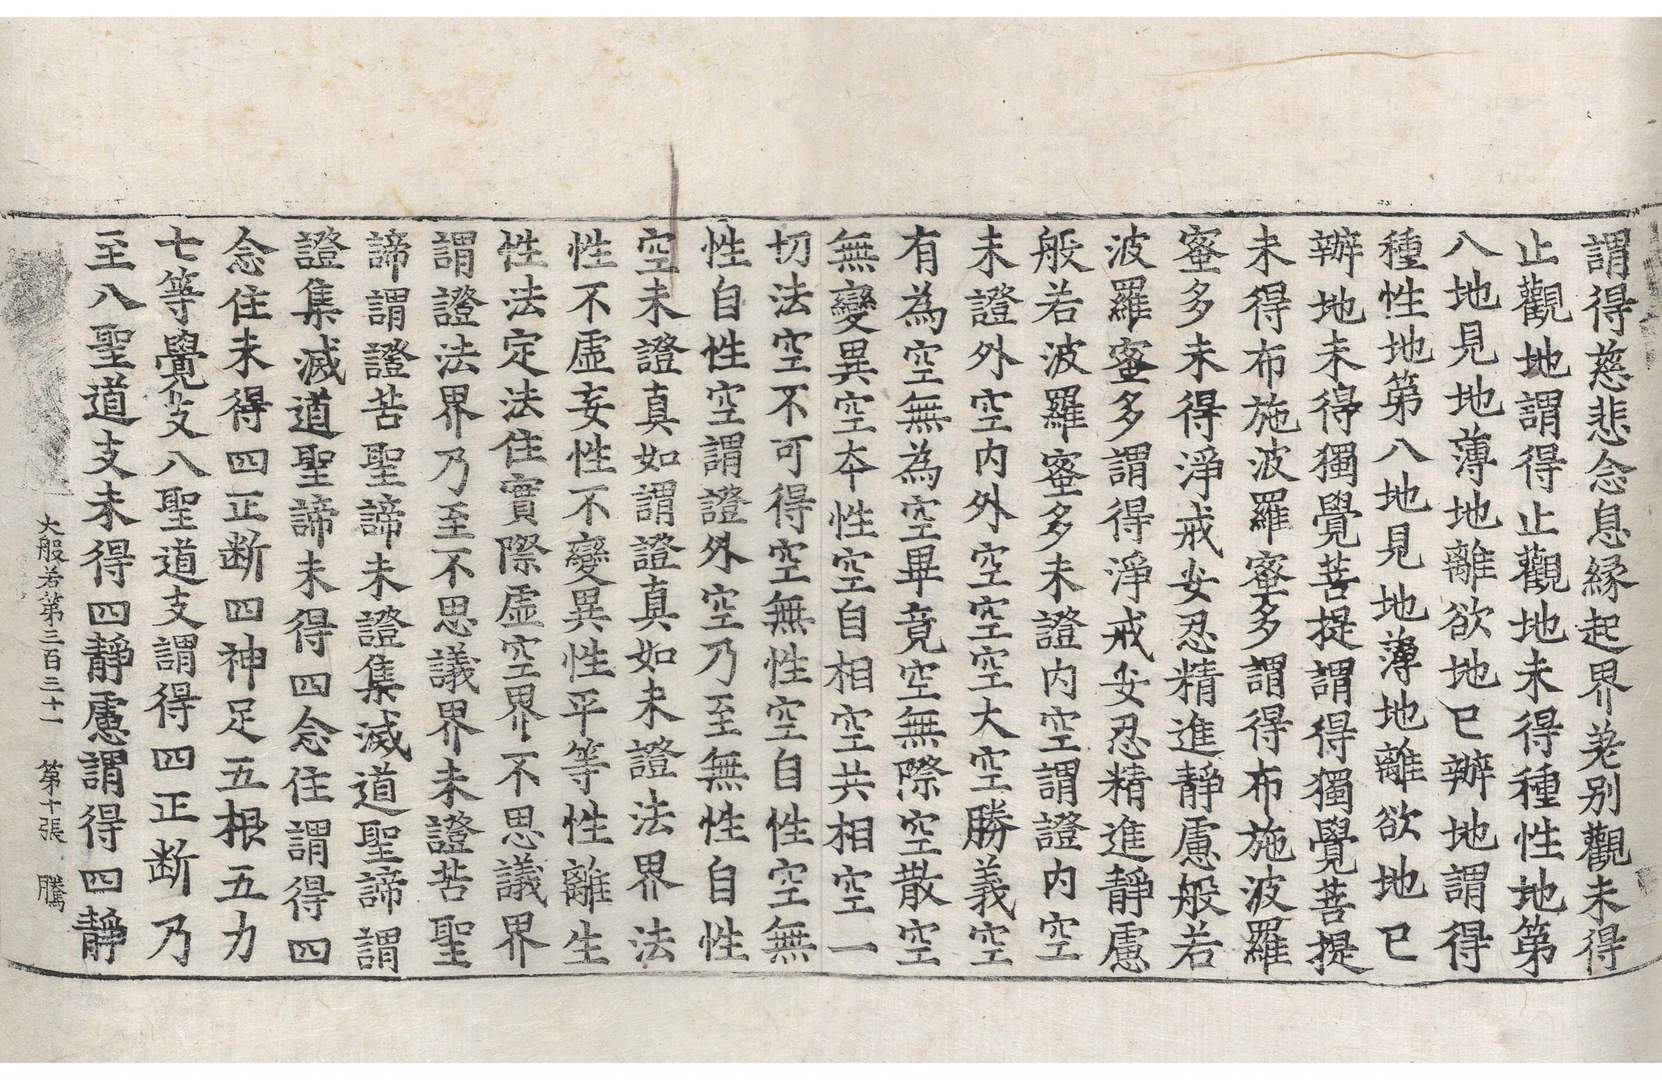 謂得慈悲念息縁起界差別觀未得
止觀地謂得止觀地未得種性地第
八地見地薄地離欲地已辦地謂得
種性地第八地見地薄地離欲地已
辦地未得獨覺菩提謂得獨覺菩提
未得布施波羅蜜多謂得布施波羅
蜜多未得淨戒安忍精進靜慮般若
波羅蜜多謂得淨戒安忍精進靜慮
般若波羅蜜多未證内空謂證内空
未證外空内外空空空大空勝義空
有為空無為空畢竟空無際空散空
無變異空本性空自相空共相空一
切法空不可得空無性空自性空無
性自性空謂證外空乃至無性自性
空未證真如謂證真如未證法界法
性不虛妄性不變異性平等性離生
性法定法住實際虛空界不思議界
謂證法界乃至不思議界未證苦聖
諦謂證苦聖諦未證集滅道聖諦謂
證集滅道聖諦未得四念住謂得四
念住未得四正断四神足五根五力
七等覺支八聖道支謂得四正断乃
至八聖道支未得四靜慮謂得四靜
大般若第三百三十一 第十張 騰